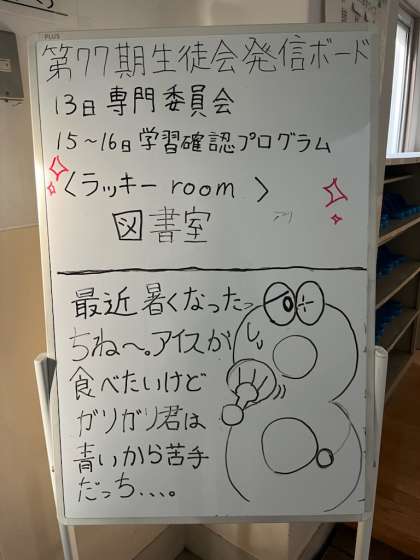 PLUS
第77期生徒会発信ボード
13日専門委員会
15～16日学習確認プログラム
〈ラッキーroom〉
図書室
最近暑くなったっ
ちね～。アイスが
食べたいけど
ガリガリ君は
青いから苦手
だっち、、、。